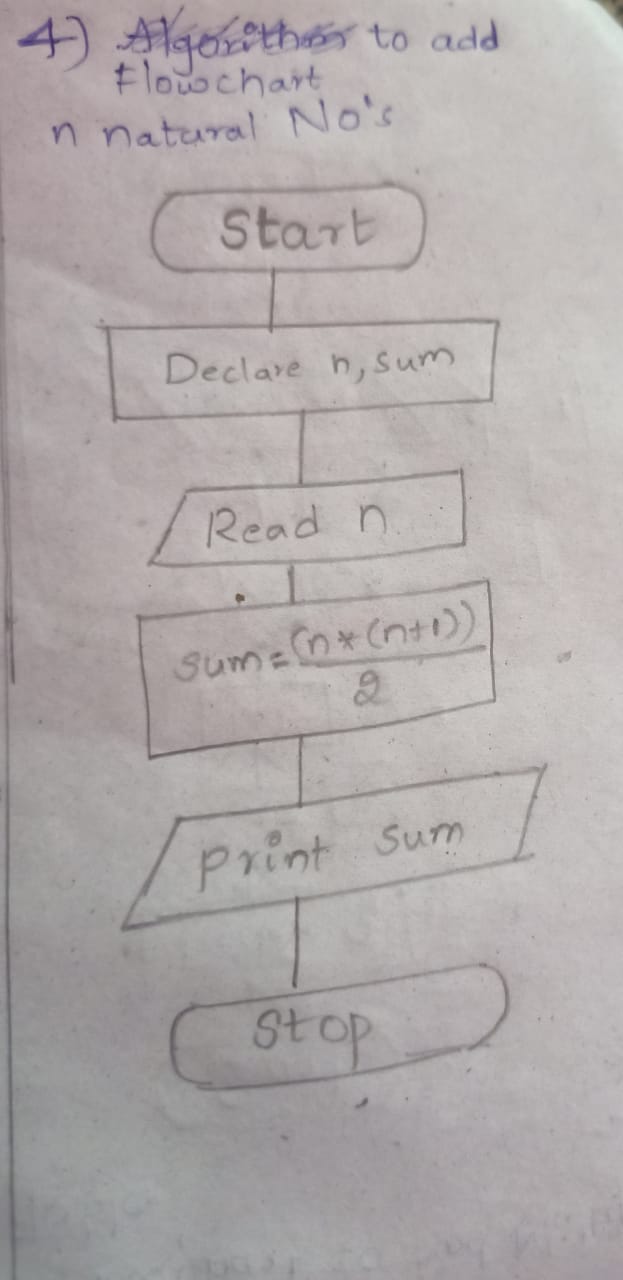 4) Algorithm to add
Flowchart
n natural No's
Start
Declare n, sum
Read n
sum = (n * (n+1))
2
print sum
Stop